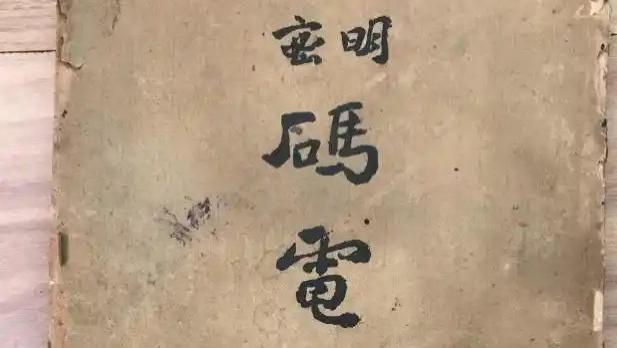 明密
碼電